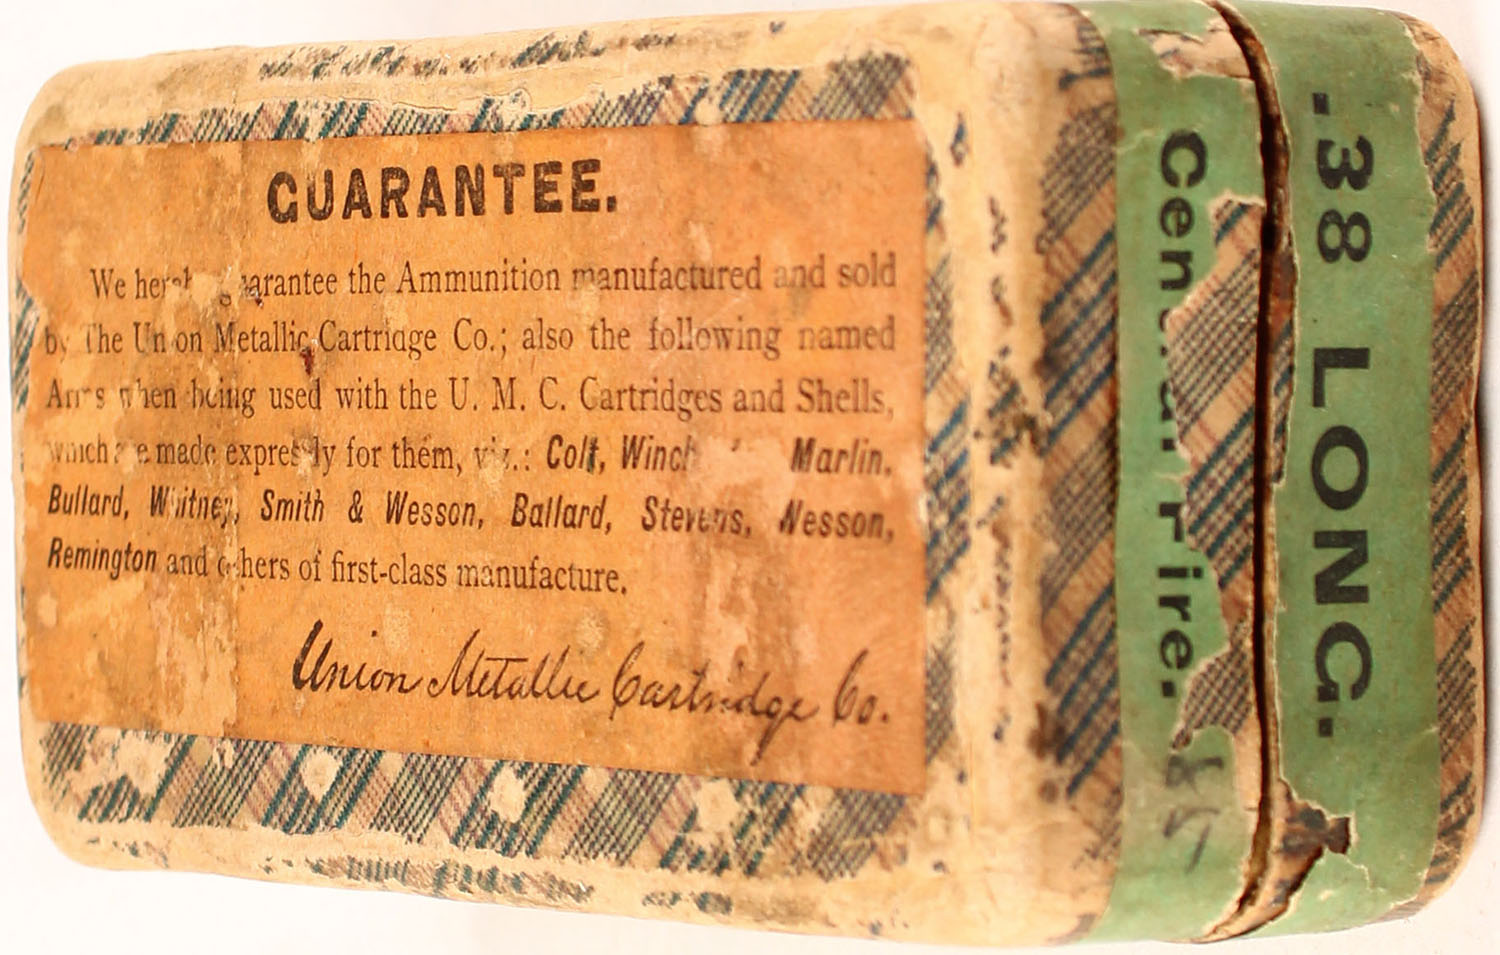 GUARANTEE.
We guarantee the Ammunition manufactured and sold
by The Union Metallic Cartridge Co.; also the following named
Arms when being used with the U. M. C. Cartridges and Shells,
which are made expressly for them, viz.: Colt, Marlin,
Bullard, Whitney, Smith & Wesson, Ballard, Stevens, Wesson,
Remington and others of first-class manufacture.
Union Metallic Cartridge Co.
Central Fire.
.38 LONG.